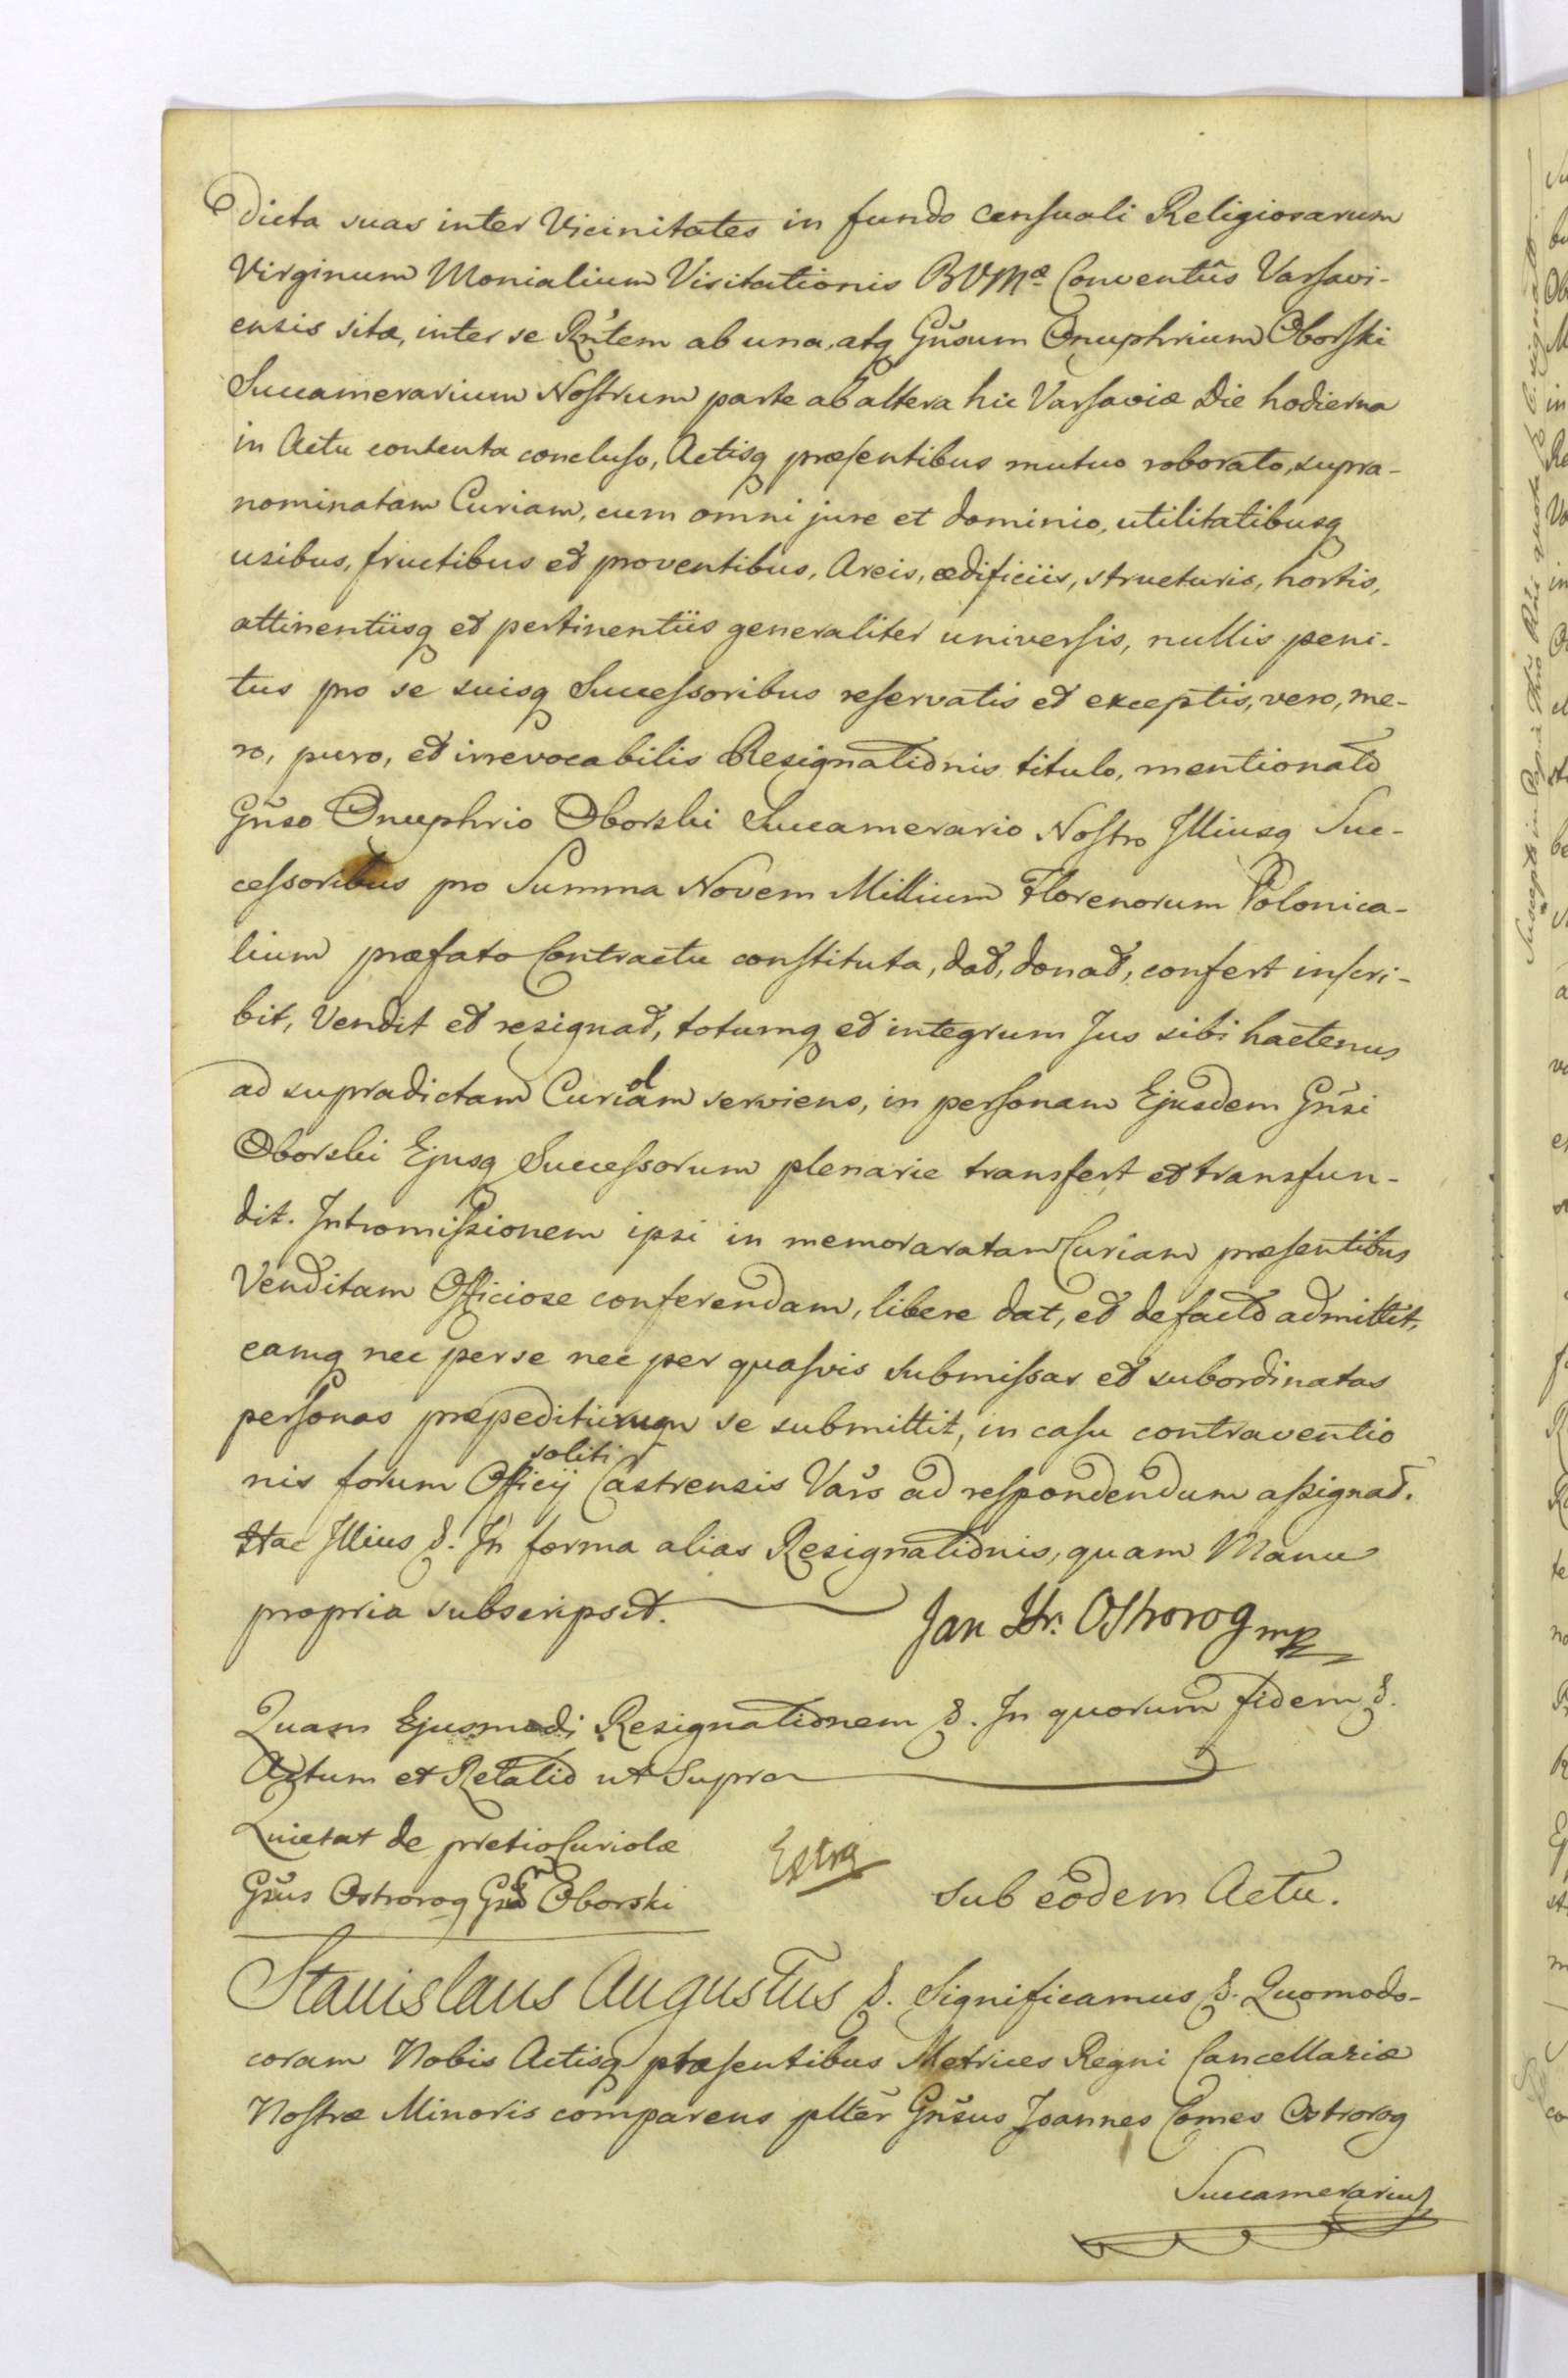 dicta suas inter Vicinitates in fundo censuali Religiosarum
Virginum Monialium Visitationis BVMæ Conventûs Varsavi-
ensis sita, inter se Rñtem ab una, atq Gñsum Onuphrium Oborski
Succamerarium Nostrum parte ab altera hic Varsaviæ Die hodierna
in Actu contenta concluso, Actisq præsentibus mutuo roborato, supra-
nominatam Curiam, cum omni jure et dominio, utilitatibusq
usibus, fructibus et proventibus, Areis, ædificiis, structuris, hortis,
attinentiisq et pertinentiis generaliter universis, nullis peni-
tus pro se suisq Successoribus reservatis et exceptis, vero, me-
ro, puro, et irrevocabilis Resignationis titulo, mentionato
Gñso Onuphrio Oborski Succamerario Nostro Illiusq Suc-
cessoribus pro Summa Novem Millium Florenorum Polonica-
lium præfato Contractu constituta, dat, donat, confert inscri-
bit, Vendit et resignat, totumq et integrum Jus sibi hactenus
ad supradictam Curiam serviens, in personam Ejusdem Gñsi
Oborski Ejusq Successorum plenarie transfert et transfun-
dit. Intromissionem ipsi in memoraratam Curiam præsentibus
Venditam Officiose conferendam, libere dat, et de facto admittit,
eamq nec per se nec per quasvis submissas et subordinatas
personas præpediturum se submittit, in casu contraventio
nis forum Officij soliti Castrensis Vars ad respondendum assignat.
Hac Illius &. In forma alias Resignationis, quam Manu
propria subscripsit. Jan Hr: Ostrorog mp
Quam Ejusmodi Resignationem &. In quorum fidem &.
Actum et Relatio ut Supra
Quietat de pretio Curiolæ
Gñsus Ostrorog Gñsm Oborski
Extra
Sub eodem Actu.
Stanislaus Augustus &. Significamus &. Quomodo-
coram Nobis Actisq præsentibus Metrices Regni Cancellariæ
Nostræ Minoris comparens pltēr Gñsus Joannes Comes Ostrorog
Succamerarius